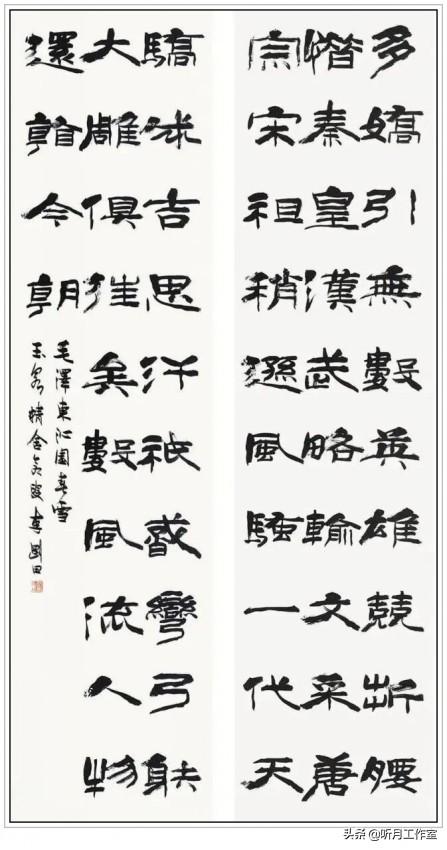 多嬌引無數英雄競折腰
惜秦皇漢武略輸文采唐
宗宋祖稍遜風騷一代天
驕成吉思汗祇識彎弓射
大雕俱往矣數風流人物
還看今朝
毛澤東沁園春雪
玉泉精舍
头条 @听月工作室